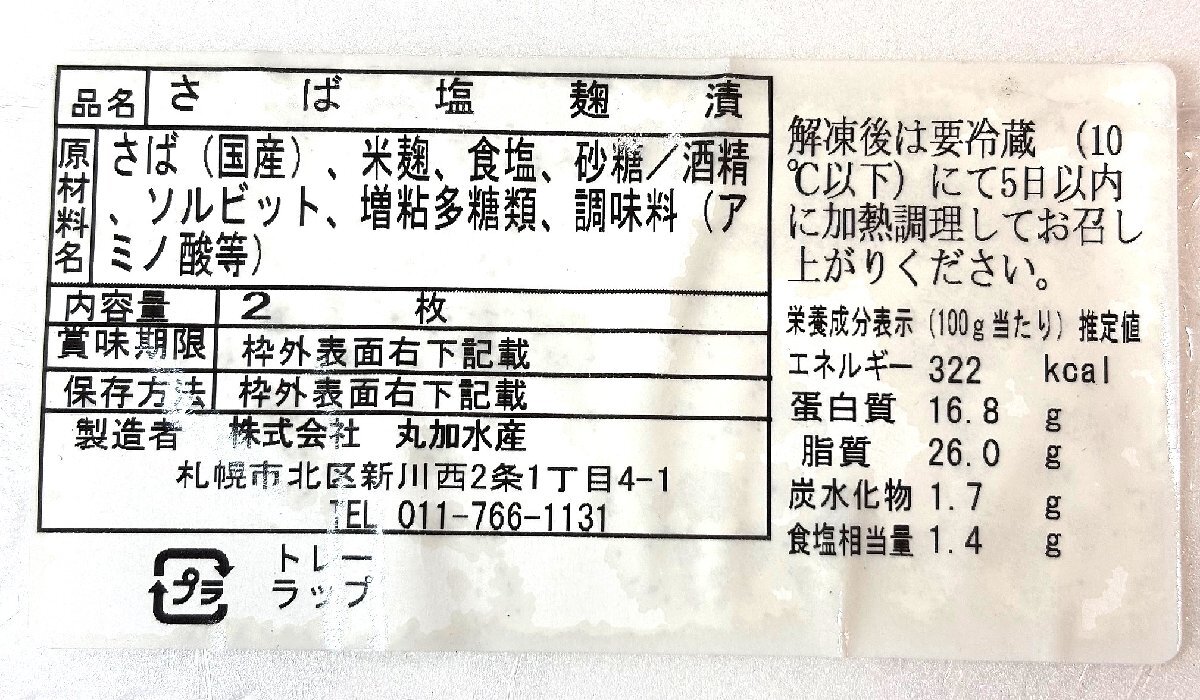 品名 さば塩麹漬
原材料名 さば（国産）、米麹、食塩、砂糖／酒精
、ソルビット、増粘多糖類、調味料（ア
ミノ酸等）
内容量 2 枚
賞味期限 枠外表面右下記載
保存方法 枠外表面右下記載
製造者 株式会社 丸加水産
札幌市北区新川西2条1丁目4-1
TEL 011-766-1131
プラ
トレー
ラップ
解凍後は要冷蔵（10
℃以下）にて5日以内
に加熱調理してお召し
上がりください。
栄養成分表示（100g当たり）推定値
エネルギー 322 kcal
蛋白質 16.8 g
脂質 26.0 g
炭水化物 1.7 g
食塩相当量 1.4 g